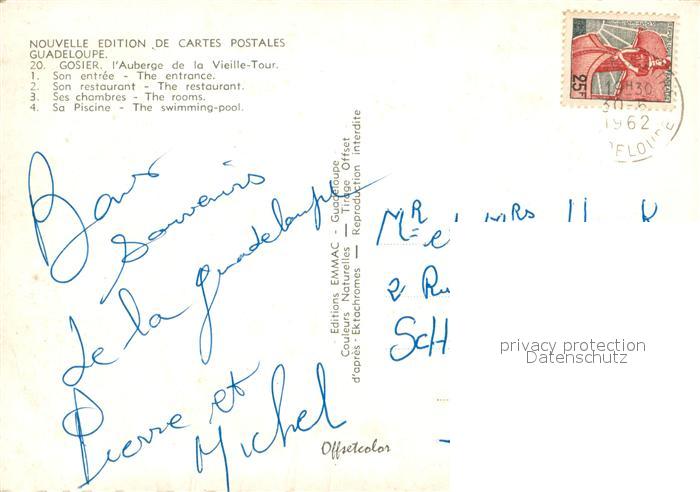 NOUVELLE EDITION DE CARTES POSTALES
GUADELOUPE.
20. GOSIER. l'Auberge de la Vieille-Tour.
1. Son entrée - The entrance.
2. Son restaurant - The restaurant.
3. Ses chambres - The rooms.
4. Sa Piscine - The swimming-pool.
25F
19H30
1962
Bons
souvenirs
de la guadeloupe
Pierre et
Michel
Editions EMMAC - Guadeloupe
Couleurs Naturelles — Tirage Offset
d'après Ektachromes — Reproduction interdite
Offsetcolor
MR
2
privacy protection
Datenschutz